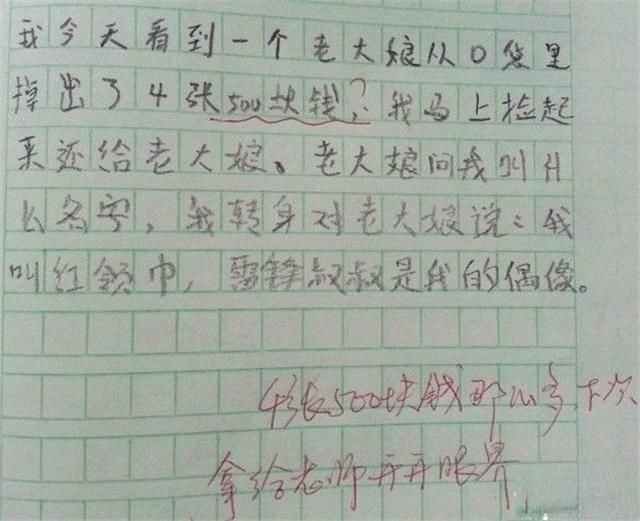 我今天看到一个老大娘从口袋里
掉出了4张500块钱,?我马上捡起
来还给老大娘。老大娘问我叫什
么名字,我转身对老大娘说:我
叫红领巾,雷锋叔叔是我的偶像。
4张500块钱那么多,下次
拿给老师开开眼界